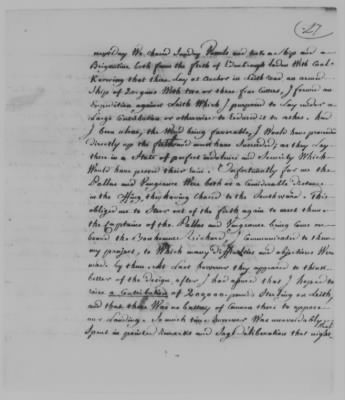 27
next day We chased Sunday Vessels and took a Ship and a
Brigantine both from the firth of Edinburgh laden With Coal
Knowing that there lay at Anchor in Leith road an armed
Ship of 20 guns With two or three fine Cutters, I formed an
expedition against Leith Which I purposed to lay under a
Large Contribution or otherwise to reduce it to ashes. Had
I been alone, the Wind being favorable, I Would have proceeded
directly up the firth and must have Succeeded; as they lay
there in a State of perfect indolence and Security Which
Would have proved their ruin. Unfortunately for me the
Pallas and Vengeance Were both at a Considerable distance
in the offing, they having Chased to the Southward. This
obliged me to Steer out of the firth again to meet them
the Captains of the Pallas and Vengeance being Come on
board the Bonhomme Richard, I Communicated to them
my project, to Which many difficulties and objections Were
made by them. At Last however they appeared to think
better of the design, after I had assured them that I Hoped to
raise a Contribution of 200000 pounds Sterling on Leith,
and that there Was no battery of Cannon there to oppose
our Landing. So much time however Was unavoidably
Spent in pointed remarks and Sage deliberation that night